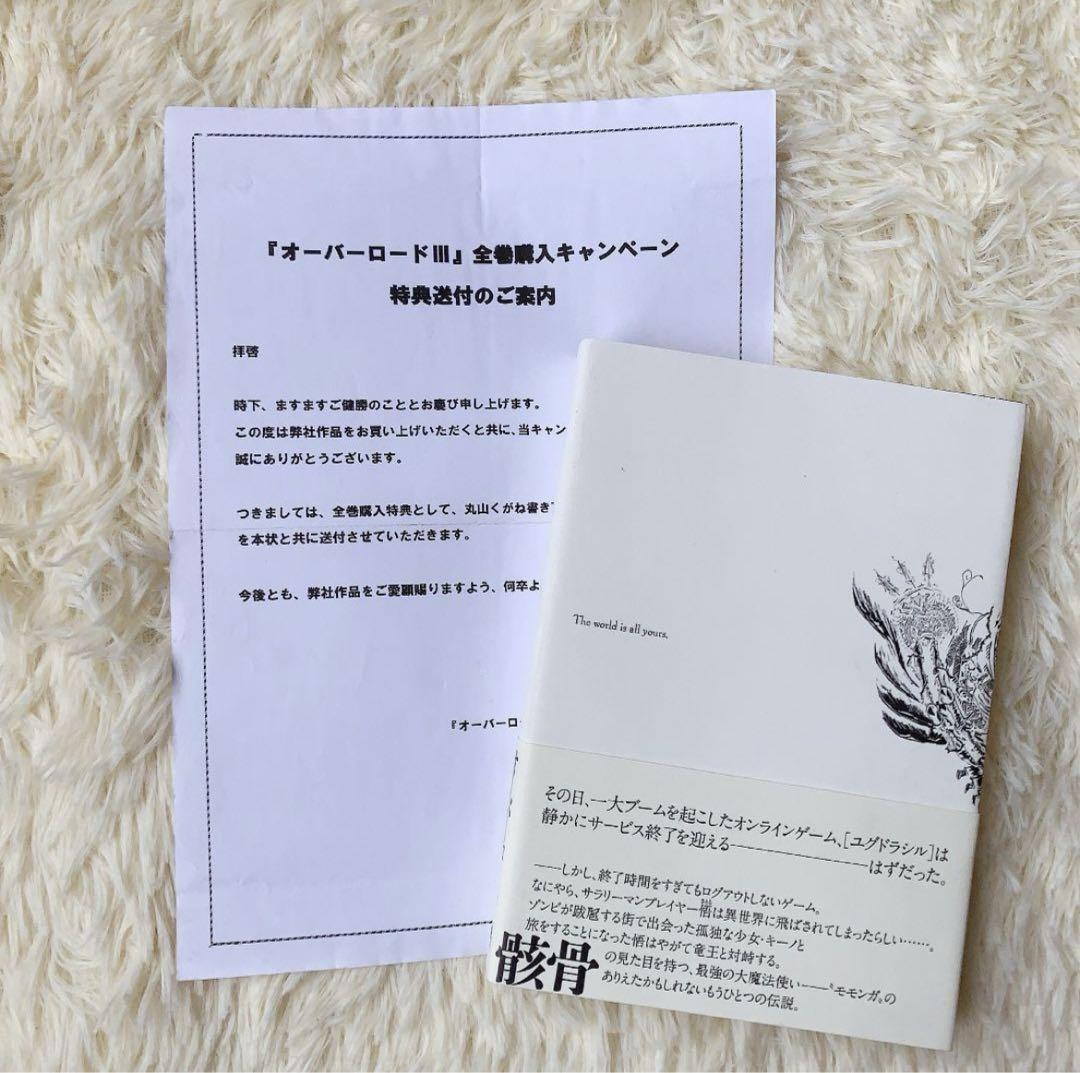 『オーバーロードⅢ』全巻購入キャンペーン
特典送付のご案内
拝啓
時下、ますますご健勝のこととお慶び申し上げます。
この度は弊社作品をお買い上げいただくと共に、当キャン
誠にありがとうございます。
つきましては、全巻購入特典として、丸山くがね書き
を本状と共に送付させていただきます。
今後とも、弊社作品をご愛顧賜りますよう、何卒よ
『オーバーロ
The world is all yours.
その日、一大ブームを起こしたオンラインゲーム、[ユグドラシル]は
静かにサービス終了を迎える――――――はずだった。
――しかし、終了時間をすぎてもログアウトしないゲーム。
なにやら、サラリーマンプレイヤー悟は異世界に飛ばされてしまったらしい……。
ゾンビが跋扈する街で出会った孤独な少女・キーノと
旅をすることになった悟はやがて竜王と対峙する。
骸骨の見た目を持つ、最強の大魔法使い――〝モモンガ〟の
ありえたかもしれないもうひとつの伝説。